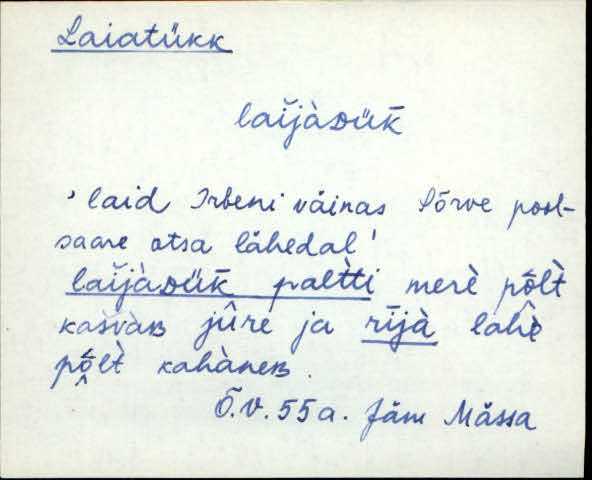 Laiatükk
laĭjàᴅük̄
' laid Irbeni väinas Sõrve pool-
saare otsa lähedal '
laĭjàᴅük̄ palèt̀ti merè põlt̀
kašvàʙ jûre ja rījà lahè
põlt̀ kahàneʙ.
Õ.V. 55a. Jäm Mässa